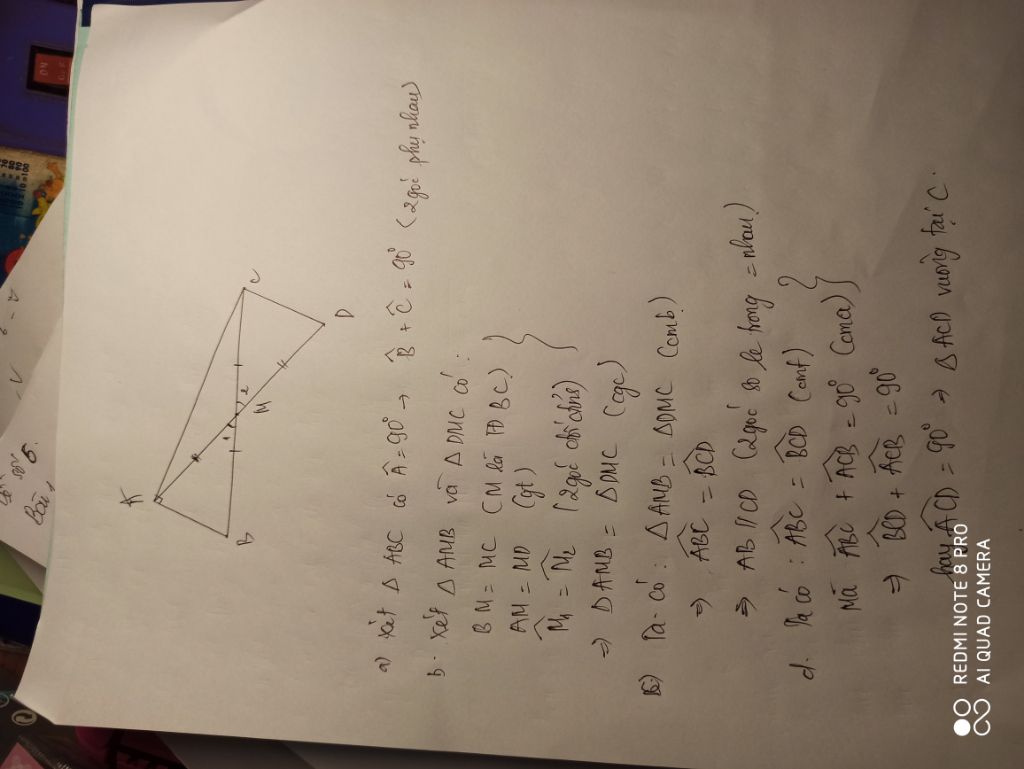 Bài 5.
A
B
C
D
M
1
2
a) Xét △ ABC có Â = 90° → B̂ + Ĉ = 90° (2 góc phụ nhau)
b. Xét △ AMB và △ DMC có:
BM = MC (M là TĐ BC)
AM = MD (gt)
M̂₁ = M̂₂ (2 góc đối đỉnh)
⇒ △AMB = △DMC (cgc)
c) Ta có: △AMB = △DMC (cmb)
⇒ ABC = BCD
⇒ AB // CD (2 góc so le trong = nhau)
d. Ta có: ABC = BCD (cmt)
Mà ABC + ACB = 90° (cma)
⇒ BCD + ACB = 90°
hay ACD = 90° ⇒ △ ACD vuông tại C.
REDMI NOTE 8 PRO
AI QUAD CAMERA